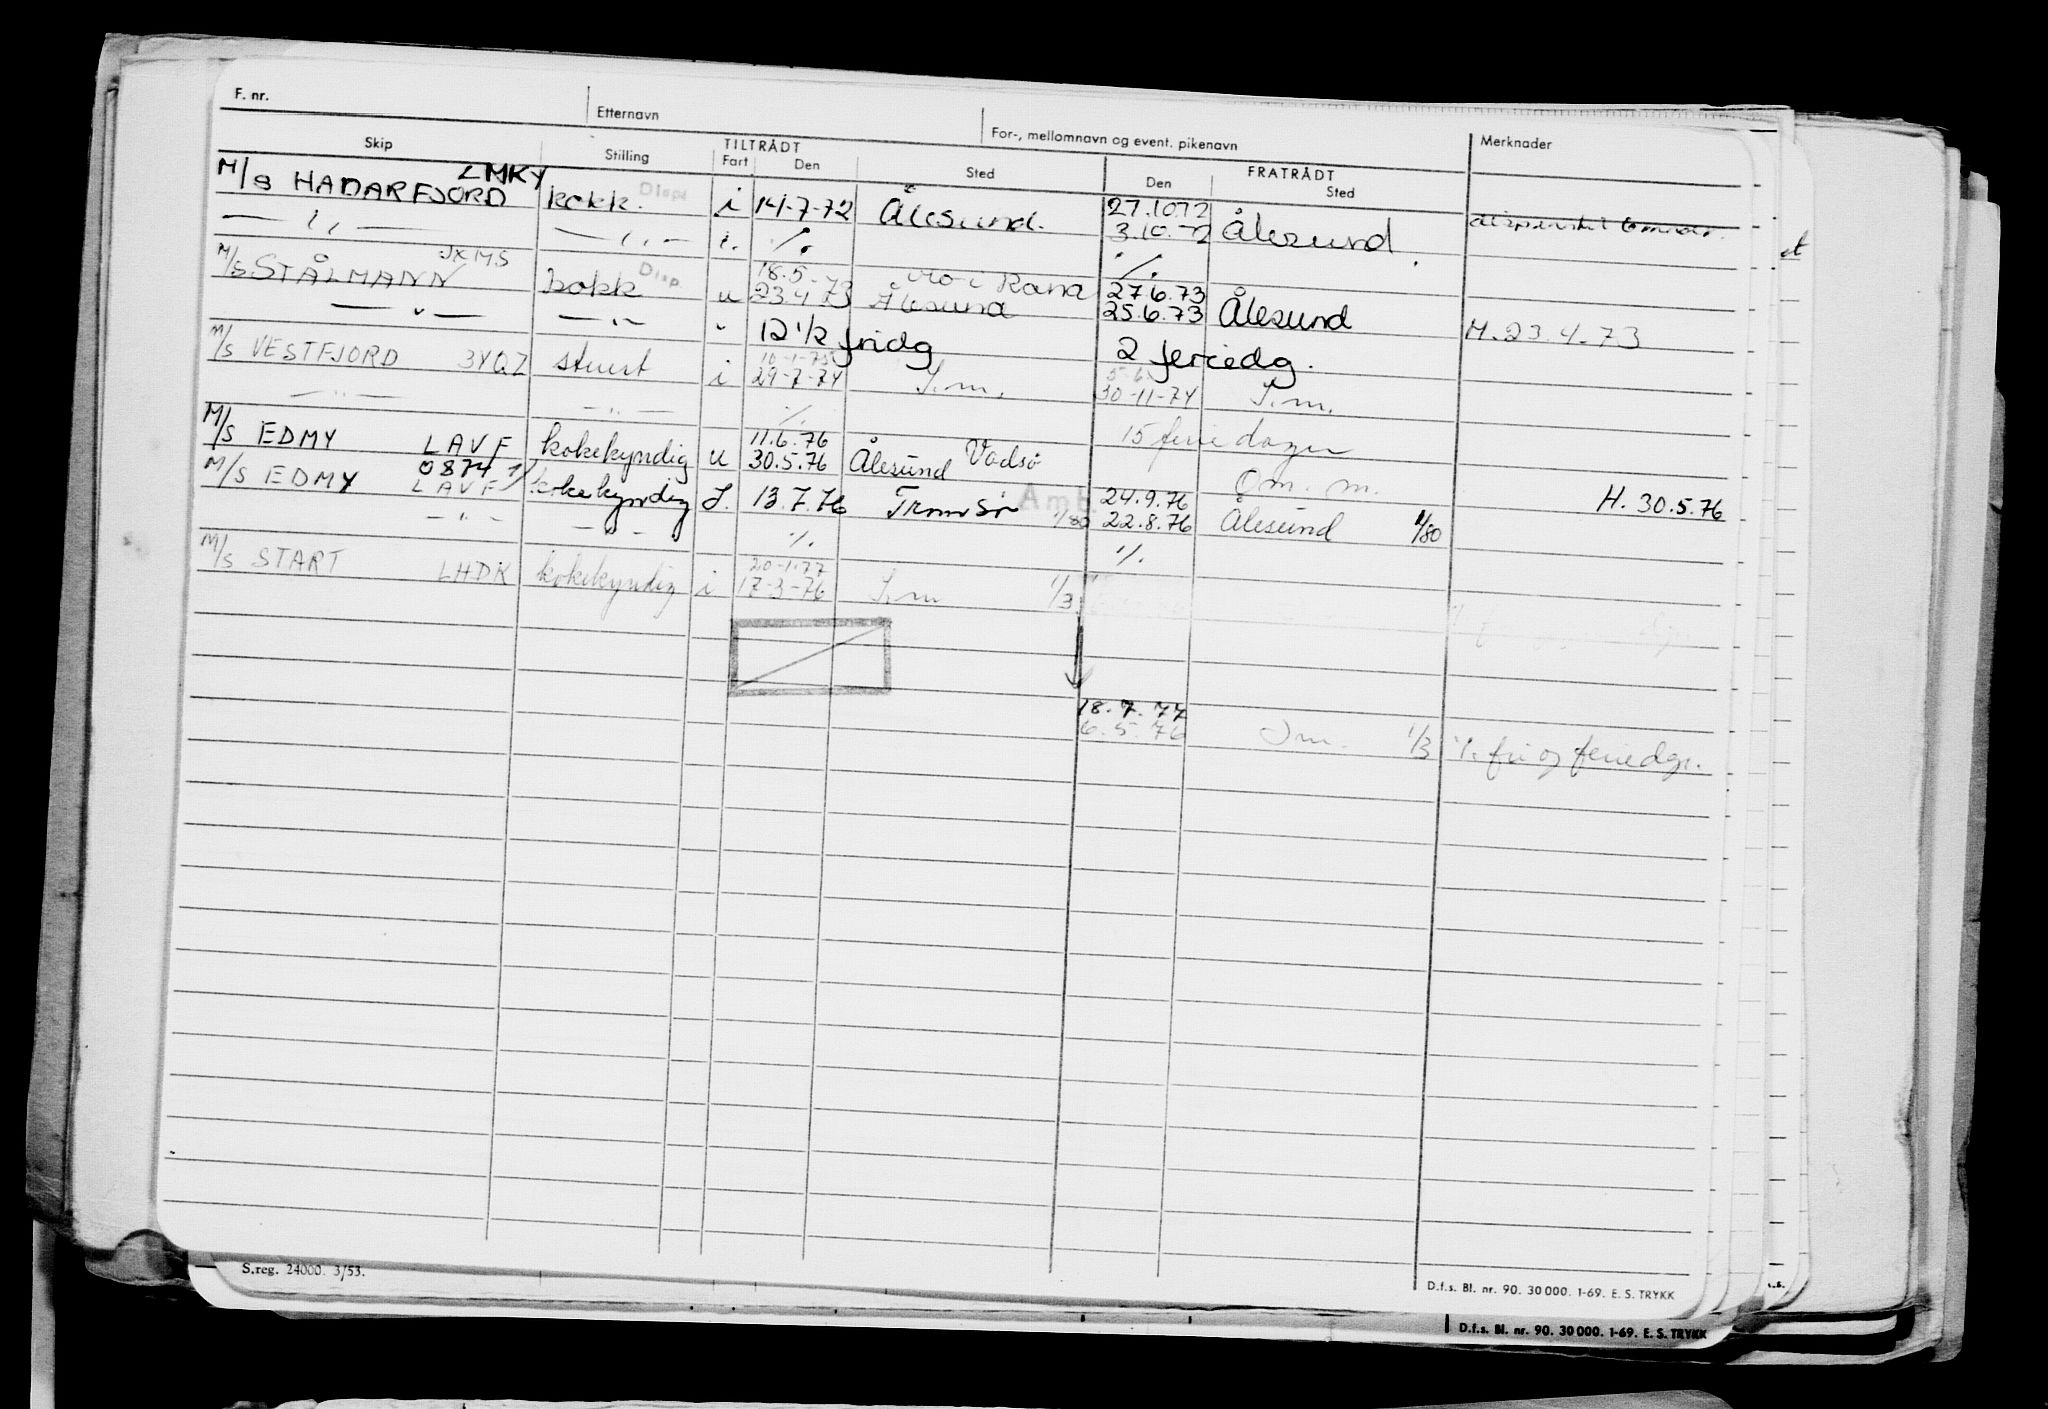 F. nr. Etternavn For-, mellomnavn og event. pikenavn Merknader
Skip Stilling TILTRÅDT Fart Den Sted FRATRÅDT Den Sted
LMKY 27.10.72
M/s HADARFJORD kokk. Disp i 14-7-72 Ålesund. 3.10.72 Ålesund
— ,, — — ,, — i. ·/. ·/.
JXMS 18.5.73 Mo i Rana 27.6.73
M/s. STÅLMANN kokk Disp u 23.4.73 Ålesund 25.6.73 Ålesund
— " — — " — " 12 1/2 fridg 2 feriedg. H. 23.4.73
10-1-75
M/s VESTFJORD 3YQZ stuert i 29-7-74 I.m. 30-11-74 I.m.
— " — — " — ·/. 15 feriedager
11.6.76 Vadsø
M/s EDMY LAVF kokekyndig u 30.5.76 Ålesund Om. m. H. 30.5.76
0874 24.9.76
M/S EDMY LAVF kokekyndig I. 13.7.76 Tromsø 1/80 22.8.76 Ålesund 1/80
— " — — " — ·/. ·/.
20-1-77
M/s START LHDK kokekyndig i 17-3-76 I.m 1/3
18.7.77
6.5.76 Im. 1/3 ·/. fri og feriedgr.
S.reg. 24000. 3/53.
D.f.s. Bl. nr. 90. 30 000. 1-69. E. S. TRYKK
D.f.s. Bl. nr. 90. 30 000. 1-69. E. S. TRYKK